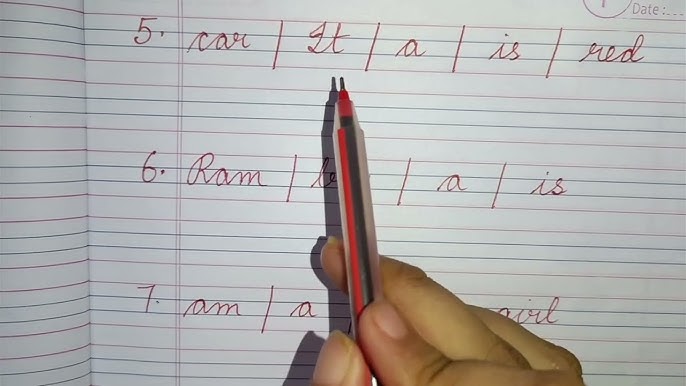 Date:
5. car | It | a | is | red
6. Ram | | a | is
7. am | a girl